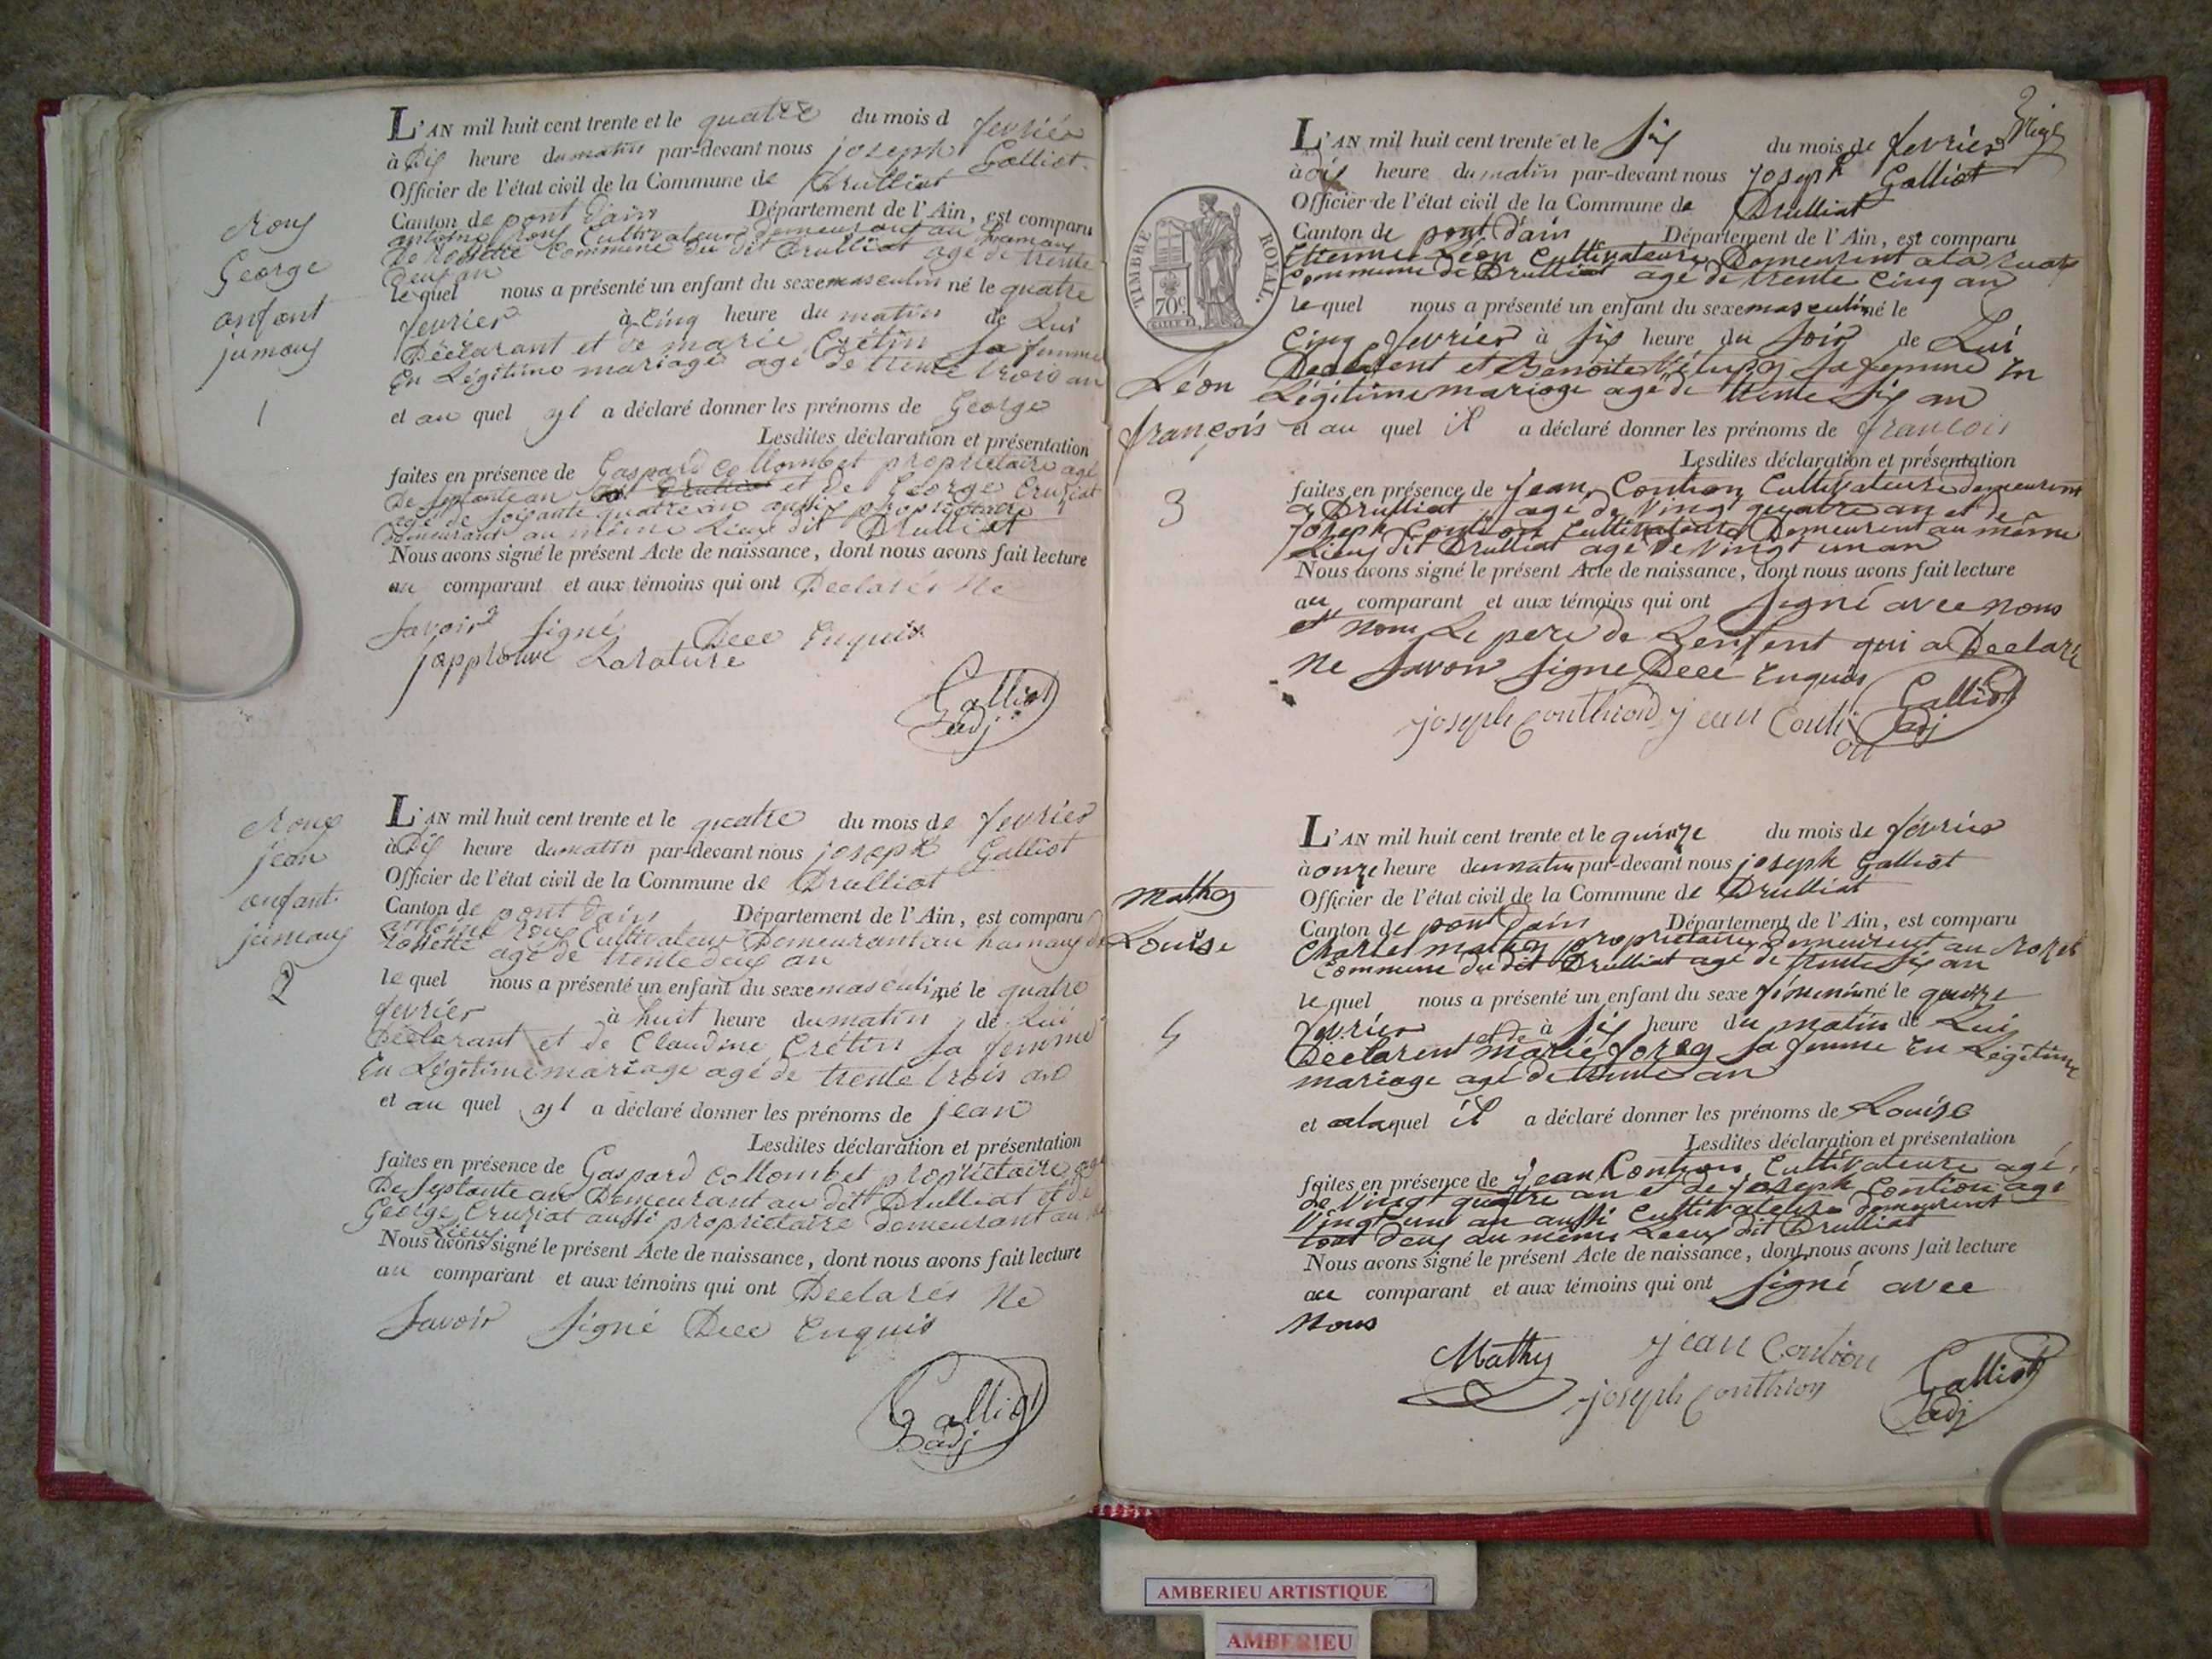 Roux
George
enfant
jumaux
1
L'AN mil huit cent trente et le quatre du mois d fevrier
à Dix heure du matin par-devant nous joseph Galliot
Officier de l'état civil de la Commune de Drulliat
Canton de pont Dain Département de l'Ain, est comparu
antoine Roux Cultivateur demeurant au hamaux
de Rossette Commune du dit Drulliat agé de trente
Deux an
le quel nous a présenté un enfant du sexe masculin né le quatre
fevrier à Cinq heure du matin de Lui
Déclarant et de marie Crétin sa femme
En Légitime mariage agé de trente trois an
et au quel yl a déclaré donner les prénoms de George
Lesdites déclaration et présentation
faites en présence de Gaspard Collombet proprietaire agé
De septante an et de George Cruziat
agé de soixante quatre an aussi proprietaire
Demeurant au même Lieux dit Drulliat
Nous avons signé le présent Acte de naissance, dont nous avons fait lecture
au comparant et aux témoins qui ont Declarés Ne
Savoir signé Dece Enquis
japprouve Larature
Galliot
adj
Roux
jean
enfant
jumaux
2
L'AN mil huit cent trente et le quatre du mois de fevrier
à Dix heure du matin par-devant nous joseph Galliot
Officier de l'état civil de la Commune de Drulliat
Canton de pont Dain Département de l'Ain, est comparu
antoine Roux Cultivateur Demeurant au hamaux de
Rossette agé de trente deux an
le quel nous a présenté un enfant du sexe masculin né le quatre
fevrier à huit heure du matin de Lui
Déclarant et de Claudine Crétin sa femme
En Légitime mariage agé de trente trois an
et au quel yl a déclaré donner les prénoms de jean
Lesdites déclaration et présentation
faites en présence de Gaspard Collombet proprietaire agé
De septante an Demeurant au dit Drulliat et de
George Cruziat aussi proprietaire demeurant au
Lieux
Nous avons signé le présent Acte de naissance, dont nous avons fait lecture
au comparant et aux témoins qui ont Declarés Ne
Savoir signé Dece Enquis
Galliot
adj
TIMBRE ROYAL.
70c.
Léon
françois
3
L'AN mil huit cent trente et le six du mois de fevrier
à dix heure du matin par-devant nous Joseph Galliot
Officier de l'état civil de la Commune de Drulliat
Canton de pont Dain Département de l'Ain, est comparu
Etienne Léon Cultivateure Demeurent a la
Commune de Drulliat agé de trente Cinq an
le quel nous a présenté un enfant du sexe masculin né le
Cinq fevrier à six heure du soir de Lui
Declarent et Benoite sa femme En
Légitime mariage agé de trente six an
et au quel il a déclaré donner les prénoms de françois
Lesdites déclaration et présentation
faites en présence de jean Contion Cultivateure demeurent
a Drulliat agé de Vingt quatre an et de
Joseph Contion Cultivateure Demeurent au même
Lieux dit Drulliat agé de Vingt un an
Nous avons signé le présent Acte de naissance, dont nous avons fait lecture
au comparant et aux témoins qui ont signé avec nous
et nom Le pere de Lenfent qui a Declaré
Ne Savoir signe Dece Enquis
joseph Conthion jean Contion
Galliot
adj
Mathy
Louise
4
L'AN mil huit cent trente et le quinze du mois de février
à onze heure du matin par-devant nous joseph Galliot
Officier de l'état civil de la Commune de Drulliat
Canton de pont Dain Département de l'Ain, est comparu
Charles mathy proprietaire demeurent au Rozet
Commune du dit Drulliat agé de trente six an
le quel nous a présenté un enfant du sexe féminin né le quinze
fevrier à six heure du matin de Lui
Déclarent et de marie forey sa femme En Légitime
mariage agé de trente an
et alaquel il a déclaré donner les prénoms de Louise
Lesdites déclaration et présentation
faites en présence de jean Contion Cultivateure agé
de Vingt quatre an et de joseph Contion agé
Vingt un an aussi Cultivateure demeurent
tout deux au même Lieux dit Drulliat
Nous avons signé le présent Acte de naissance, dont nous avons fait lecture
au comparant et aux témoins qui ont signé avec
Nous
Mathy jean Contion
joseph Conthion
Galliot
adj
AMBERIEU ARTISTIQUE
AMBERIEU